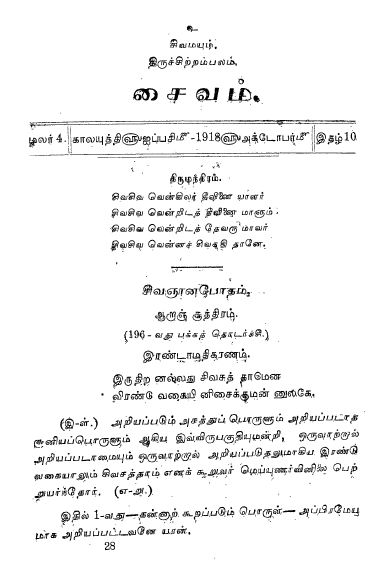 உ
சிவமயம்.
திருச்சிற்றம்பலம்.
சைவம்.
மலர் 4. காலயுத்திஹு ஐப்பசிமீ -1918ஹு அக்டோபர்மீ இதழ் 10
திருமந்திரம்.
சிவசிவ வென்கிலர் தீவினை யாளர்
சிவசிவ வென்றிடத் தீவினை மாளும்
சிவசிவ வென்றிடத் தேவரு மாவர்
சிவசிவ வென்னச் சிவகதி தானே.
சிவஞானபோதம்.
ஆறாஞ் சூத்திரம்.
(196-வது பக்கத் தொடர்ச்சி.)
இரண்டாமதிகரணம்.
இருதிற னல்லது சிவசத் தாமென
விரண்டு வகையி னிசைக்குமன் னுலகே.
(இ-ள்.) அறியப்படும் அசத்துப் பொருளும் அறியப்படாத
சூனியப்பொருளும் ஆகிய இவ்விருபகுதியுமன்றி, ஒருவாற்றால்
அறியப்படாமையும் ஒருவாற்றால் அறியப்படுதலுமாகிய இரண்டு
வகையாலும் சிவசத்தாம் எனக் கூறுவர் மெய்யுணர்வினிலை பெற்
றுயர்ந்தோர். (எ-று.)
இதில் 1-வது—தன்னாற் கூறப்படும் பொருள்—அப்பிரமேய
மாக அறியப்பட்டவனே யான்.
28